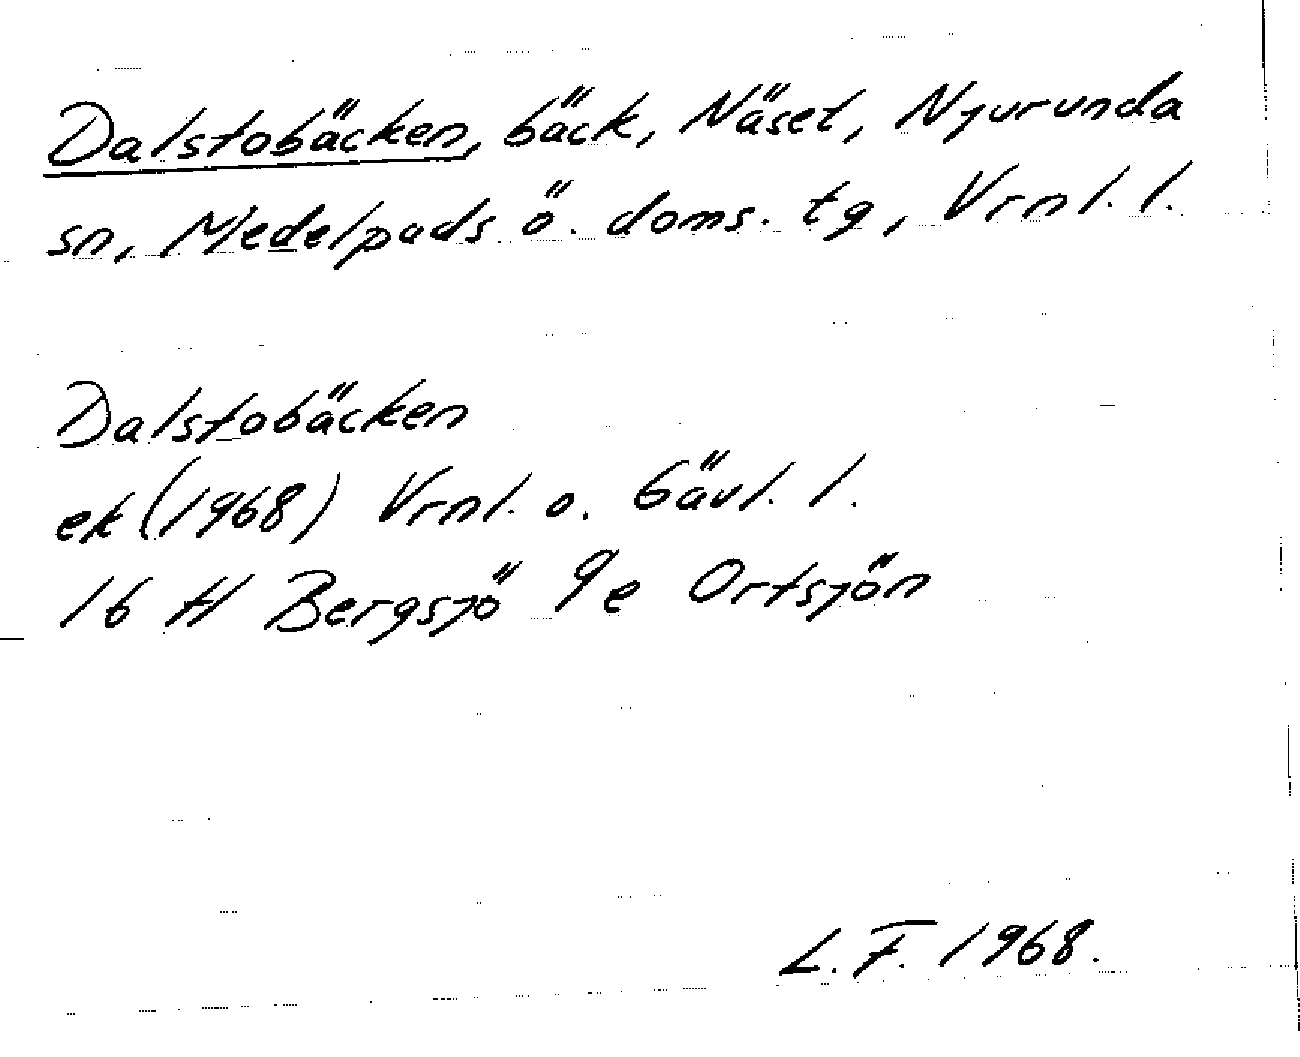 Dalstobäcken, bäck, Näset, Njurunda
sn, Medelpads ö. doms. tg, Vrnl. l.
Dalstobäcken
ek (1968) Vrnl. o. Gävl. l.
16 H Bergsjö 9e Ortsjön
L. F. 1968.